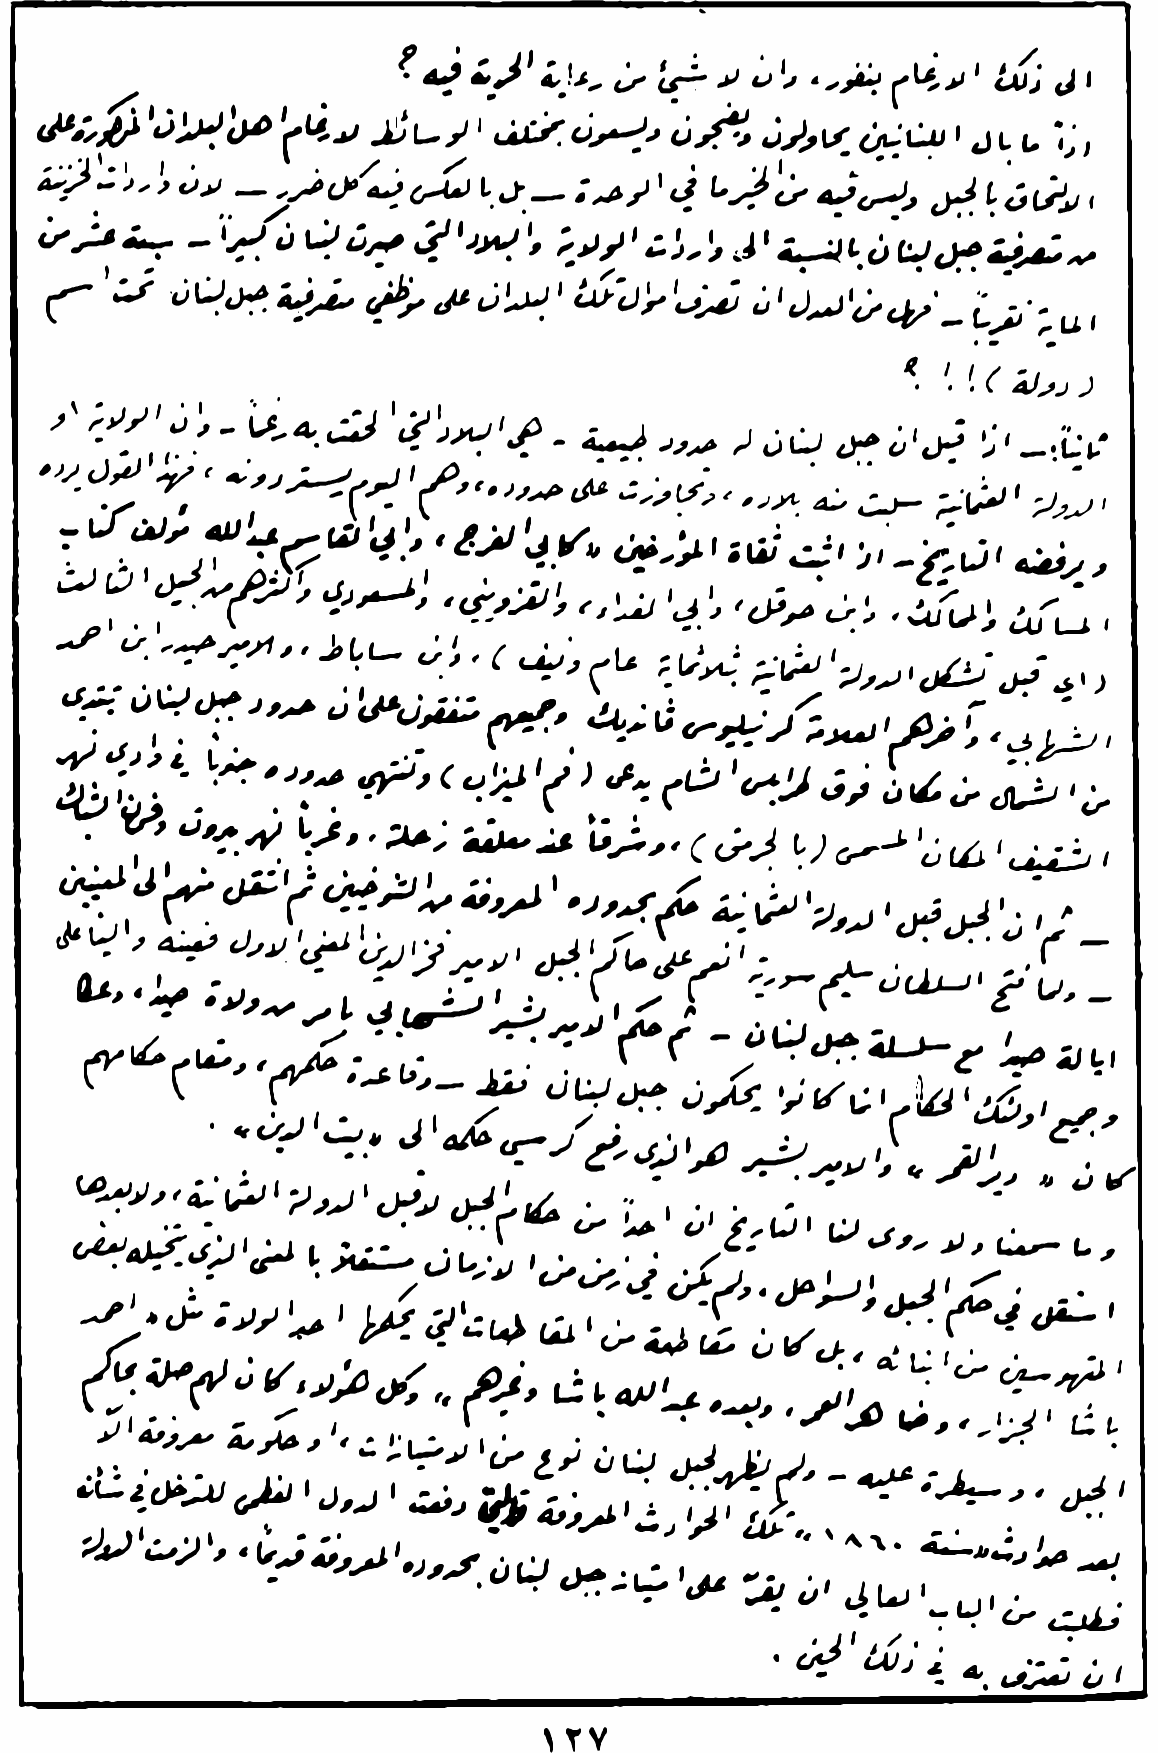 الى ذلك الارغام بنفور، وان لا شيئ من رعاية الحرية فيه ؟
اذاً ما بال اللبنانيين يحاولون ويضجون ويسعون بمختلف الوسائط لارغام اهل البلدان المذكورة على
الالتحاق بالجبل وليس فيه من الخير ما في الوحدة – بل بالعكس فيه كل ضرر – لان واردات الخزينة
من متصرفية جبل لبنان بالنسبة الى واردات الولاية والبلاد التي صيرت لبنان كبيراً – سبعة عشر من
الماية تقريباً – فهل من العدل ان تصرف اموال تلك البلدان على موظفي متصرفية جبل لبنان تحت اسم
( دولة ) ! ! ؟
ثانياً : – اذا قيل ان جبل لبنان له حدود طبيعية – هي البلاد التي الحقت به رغماً – وان الولاية او
الدولة العثمانية سلبت منه بلاده ، وتجاوزت على حدوده ، وهم اليوم يستردونه ، فهذا القول يرده
ويرفضه التاريخ – اذ اثبت ثقاة المؤرخين « كابي الفرج ، وابي القاسم عبدالله مؤلف كتاب
المسالك والممالك ، وابن حوقل ، وابي الفداء ، والقزويني ، والمسعودي واكثرهم من الجيل الثالث
( اي قبل تشكل الدولة العثمانية بثلاثماية عام ونيف ) ، وابن ساباط ، والامير حيدر ابن احمد
الشهابي ، وآخرهم العلامة كرنيليوس ڤانديك وجميعهم متفقون على ان حدود جبل لبنان تبتدي
من الشمال من مكان فوق طرابلس الشام يدعى ( فم الميزاب ) وتنتهي حدوده جنوباً في وادي نهر
الشقيف المكان المسمى ( بالجرمق ) ، وشرقاً عند معلقة زحلة ، وغرباً نهر بيروت وفرن الشباك
– ثم ان الجبل قبل الدولة العثمانية حكم بحدوده المعروفة من التنوخيين ثم انتقل منهم الى المعنيين
– ولما فتح السلطان سليم سورية انعم على حاكم الجبل الامير فخر الدين المعني الاول فعينه والياً على
ايالة صيدا مع سلسلة جبل لبنان – ثم حكم الامير بشير الشهابي بامر من ولاة صيدا ، وعكا
وجميع اولئك الحكام انما كانوا يحكمون جبل لبنان فقط – وقاعدة حكمهم ، ومقام حكامهم
كان « دير القمر » والامير بشير هو الذي رفع كرسي حكمه الى « بيت الدين » .
وما سمعنا ولا روى لنا التاريخ ان احداً من حكام الجبل لا قبل الدولة العثمانية ، ولا بعدها
استقل في حكم الجبل والسواحل ، ولم يكن في زمن من الازمان مستقلاً بالمعنى الذي يتخيله بعض
المتهوسين من ابنائه ، بل كان مقاطعة من المقاطعات التي يحكمها احد الولاة مثل « احمد
باشا الجزار ، وضاهر العمر ، وبعده عبدالله باشا وغيرهم » وكل هؤلاء كان لهم صلة بحاكم
الجبل ، وسيطرة عليه – ولم يظهر لجبل لبنان نوع من الامتيازات ، او حكومة معروفة الاّ
بعد حوادث « سنة ١٨٦٠ » تلك الحوادث المعروفة والتي دفعت الدول العظمى للتدخل في شأنه
فطلبت من الباب العالي ان يقرّ على امتياز جبل لبنان بحدوده المعروفة قديماً ، والزمت الدولة
ان تعترف به في ذلك الحين .
١٢٧